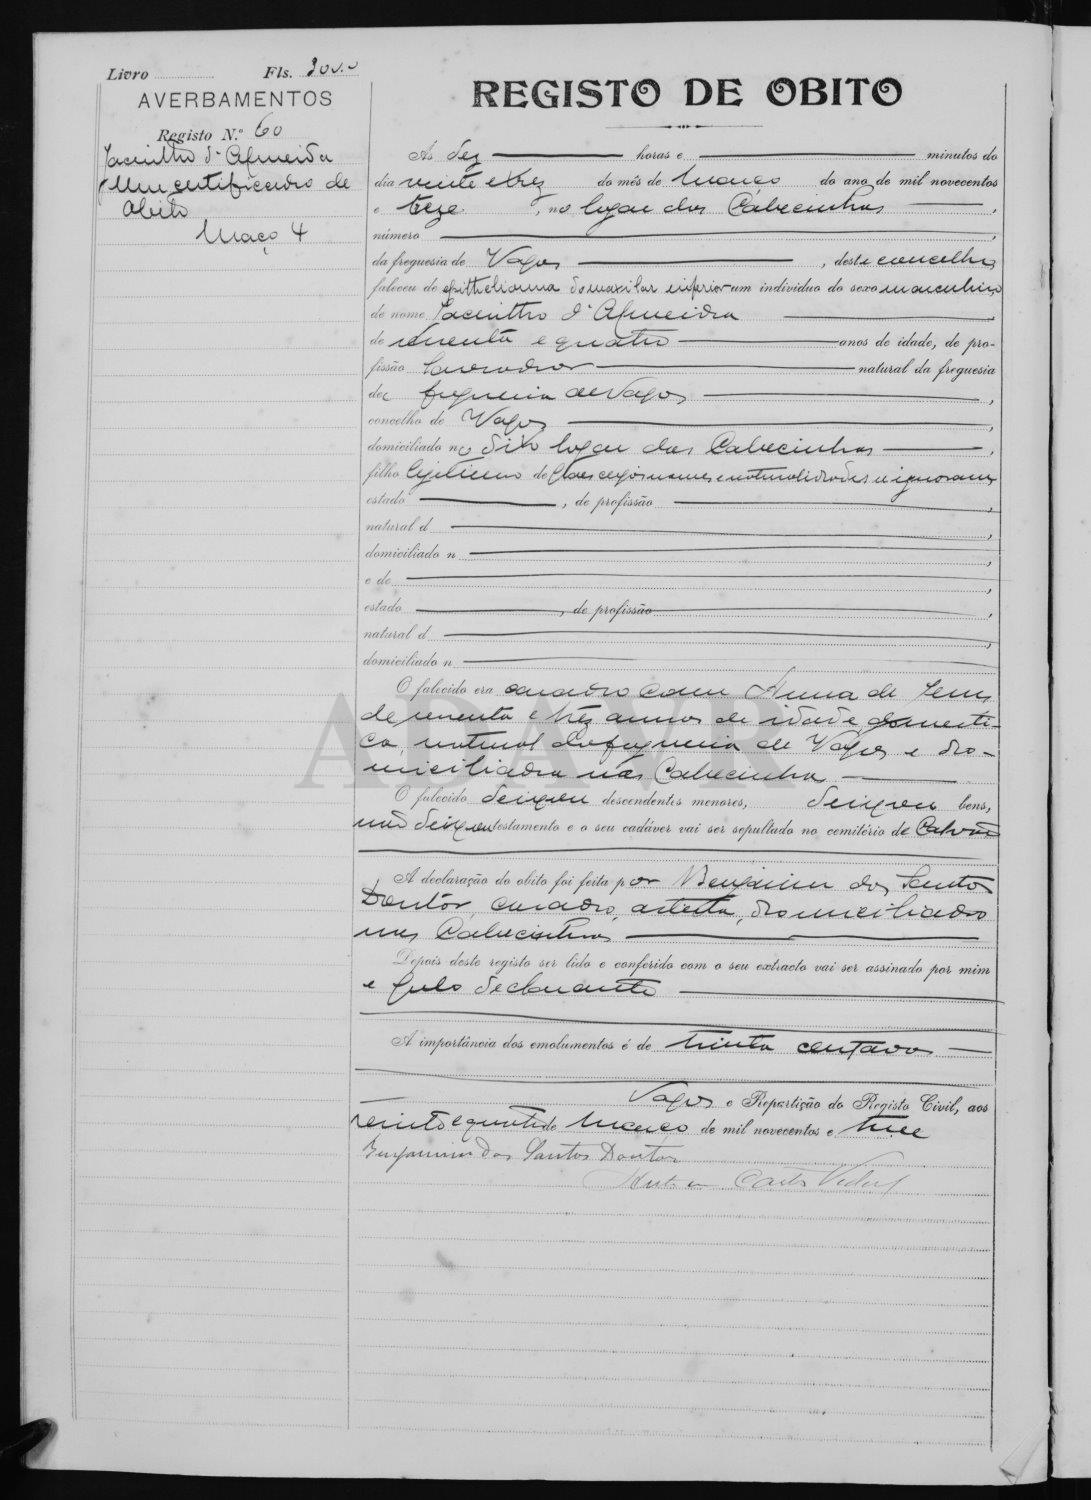 Livro Fls. 30
AVERBAMENTOS
Registo N.º 60
Jacintho d'Almeida
Um certificado de
Obito
Março 4
REGISTO DE OBITO
Ás dez horas e minutos do
dia vinte e trez do mês de Março do ano de mil novecentos
e treze, no logar das Cabecinhas,
número,
da freguesia de Vagos, deste concelho
faleceu de epithelioma do maxilar inferior um individuo do sexo masculino
de nome Jacintho d'Almeida,
de e quatro anos de idade, de pro-
fissão Lavrador natural da freguesia
de freguesia de Vagos,
concelho de Vagos,
domiciliado no dito logar das Cabecinhas,
filho legitimo de Paes cujos nomes e naturalidades se ignoram
estado, de profissão,
natural d,
domiciliado n,
e de,
estado, de profissão,
natural d,
domiciliado n
O falecido era casado com Anna de Jesus
de e trêz annos de idade domesti-
ca, natural da freguesia de Vagos e do-
miciliada nas Cabecinhas
O falecido deixou descendentes menores, deixou bens,
não deixou testamento e o seu cadáver vai ser sepultado no cemitério de Calvão
A declaração do obito foi feita por Benjamim dos Santos
Doutor, casado, domiciliado
nas Cabecinhas
Depois deste registo ser lido e conferido com o seu extracto vai ser assinado por mim
e pelo declarante
A importância dos emolumentos é de trinta centavos
Vagos e Repartição do Registo Civil, aos
vinte e quatro de Março de mil novecentos e treze
Benjamim dos Santos Doutor
ADAVR